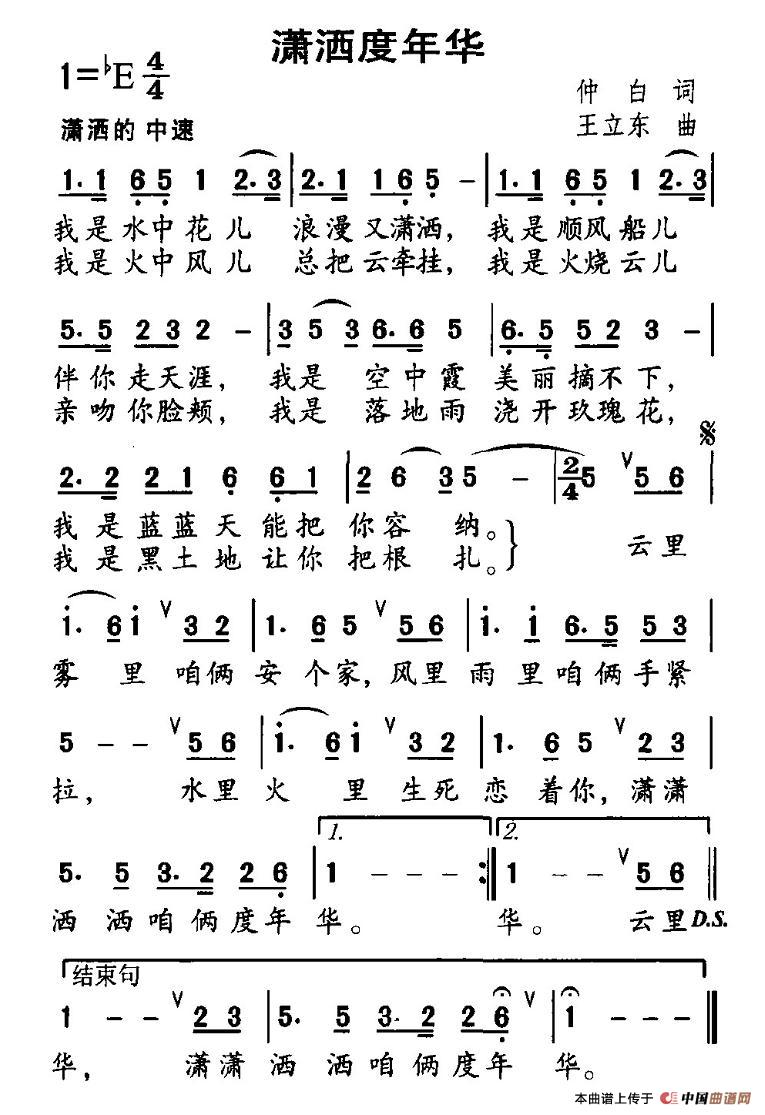 潇洒度年华
1=♭E 4/4
仲白 词
潇洒的 中速
王立东 曲
1. 1 6 5 1 2. 3 | 2. 1 1 6 5 - | 1. 1 6 5 1 2. 3 |
我是水中花儿 浪漫又潇洒, 我是顺风船儿
我是火中风儿 总把云牵挂, 我是火烧云儿
5. 5 2 3 2 - | 3 5 3 6. 6 5 | 6. 5 5 2 3 - |
伴你走天涯, 我是 空中霞 美丽摘不下,
亲吻你脸颊, 我是 落地雨 浇开玫瑰花,
2. 2 2 2 1 6 6 6 1 | 2 6 3 5 - - | 2/4 5 V 5 6 |
我是蓝蓝天能把你容纳。
我是黑土地让你把根扎。 云里
i. 6 i V 3 2 | 1. 6 5 V 5 6 | i. i 6. 5 5 3 |
雾里咱俩安个家, 风里雨里咱俩手紧
5 - - V 5 6 | i. 6 i V 3 2 | 1. 6 5 V 2 3 |
拉, 水里火里生死恋着你, 潇潇
1. 2.
5. 5 3. 2 2 2 6 | 1 - - - :| 1 - - V 5 6 ||
洒洒咱俩度年华。 华。 云里 D.S.
结束句
1 - - V 2 3 | 5. 5 3. 2 2 2 6 V | 1 - - - ||
华, 潇潇洒洒咱俩度年华。
本曲谱上传于 中国曲谱网